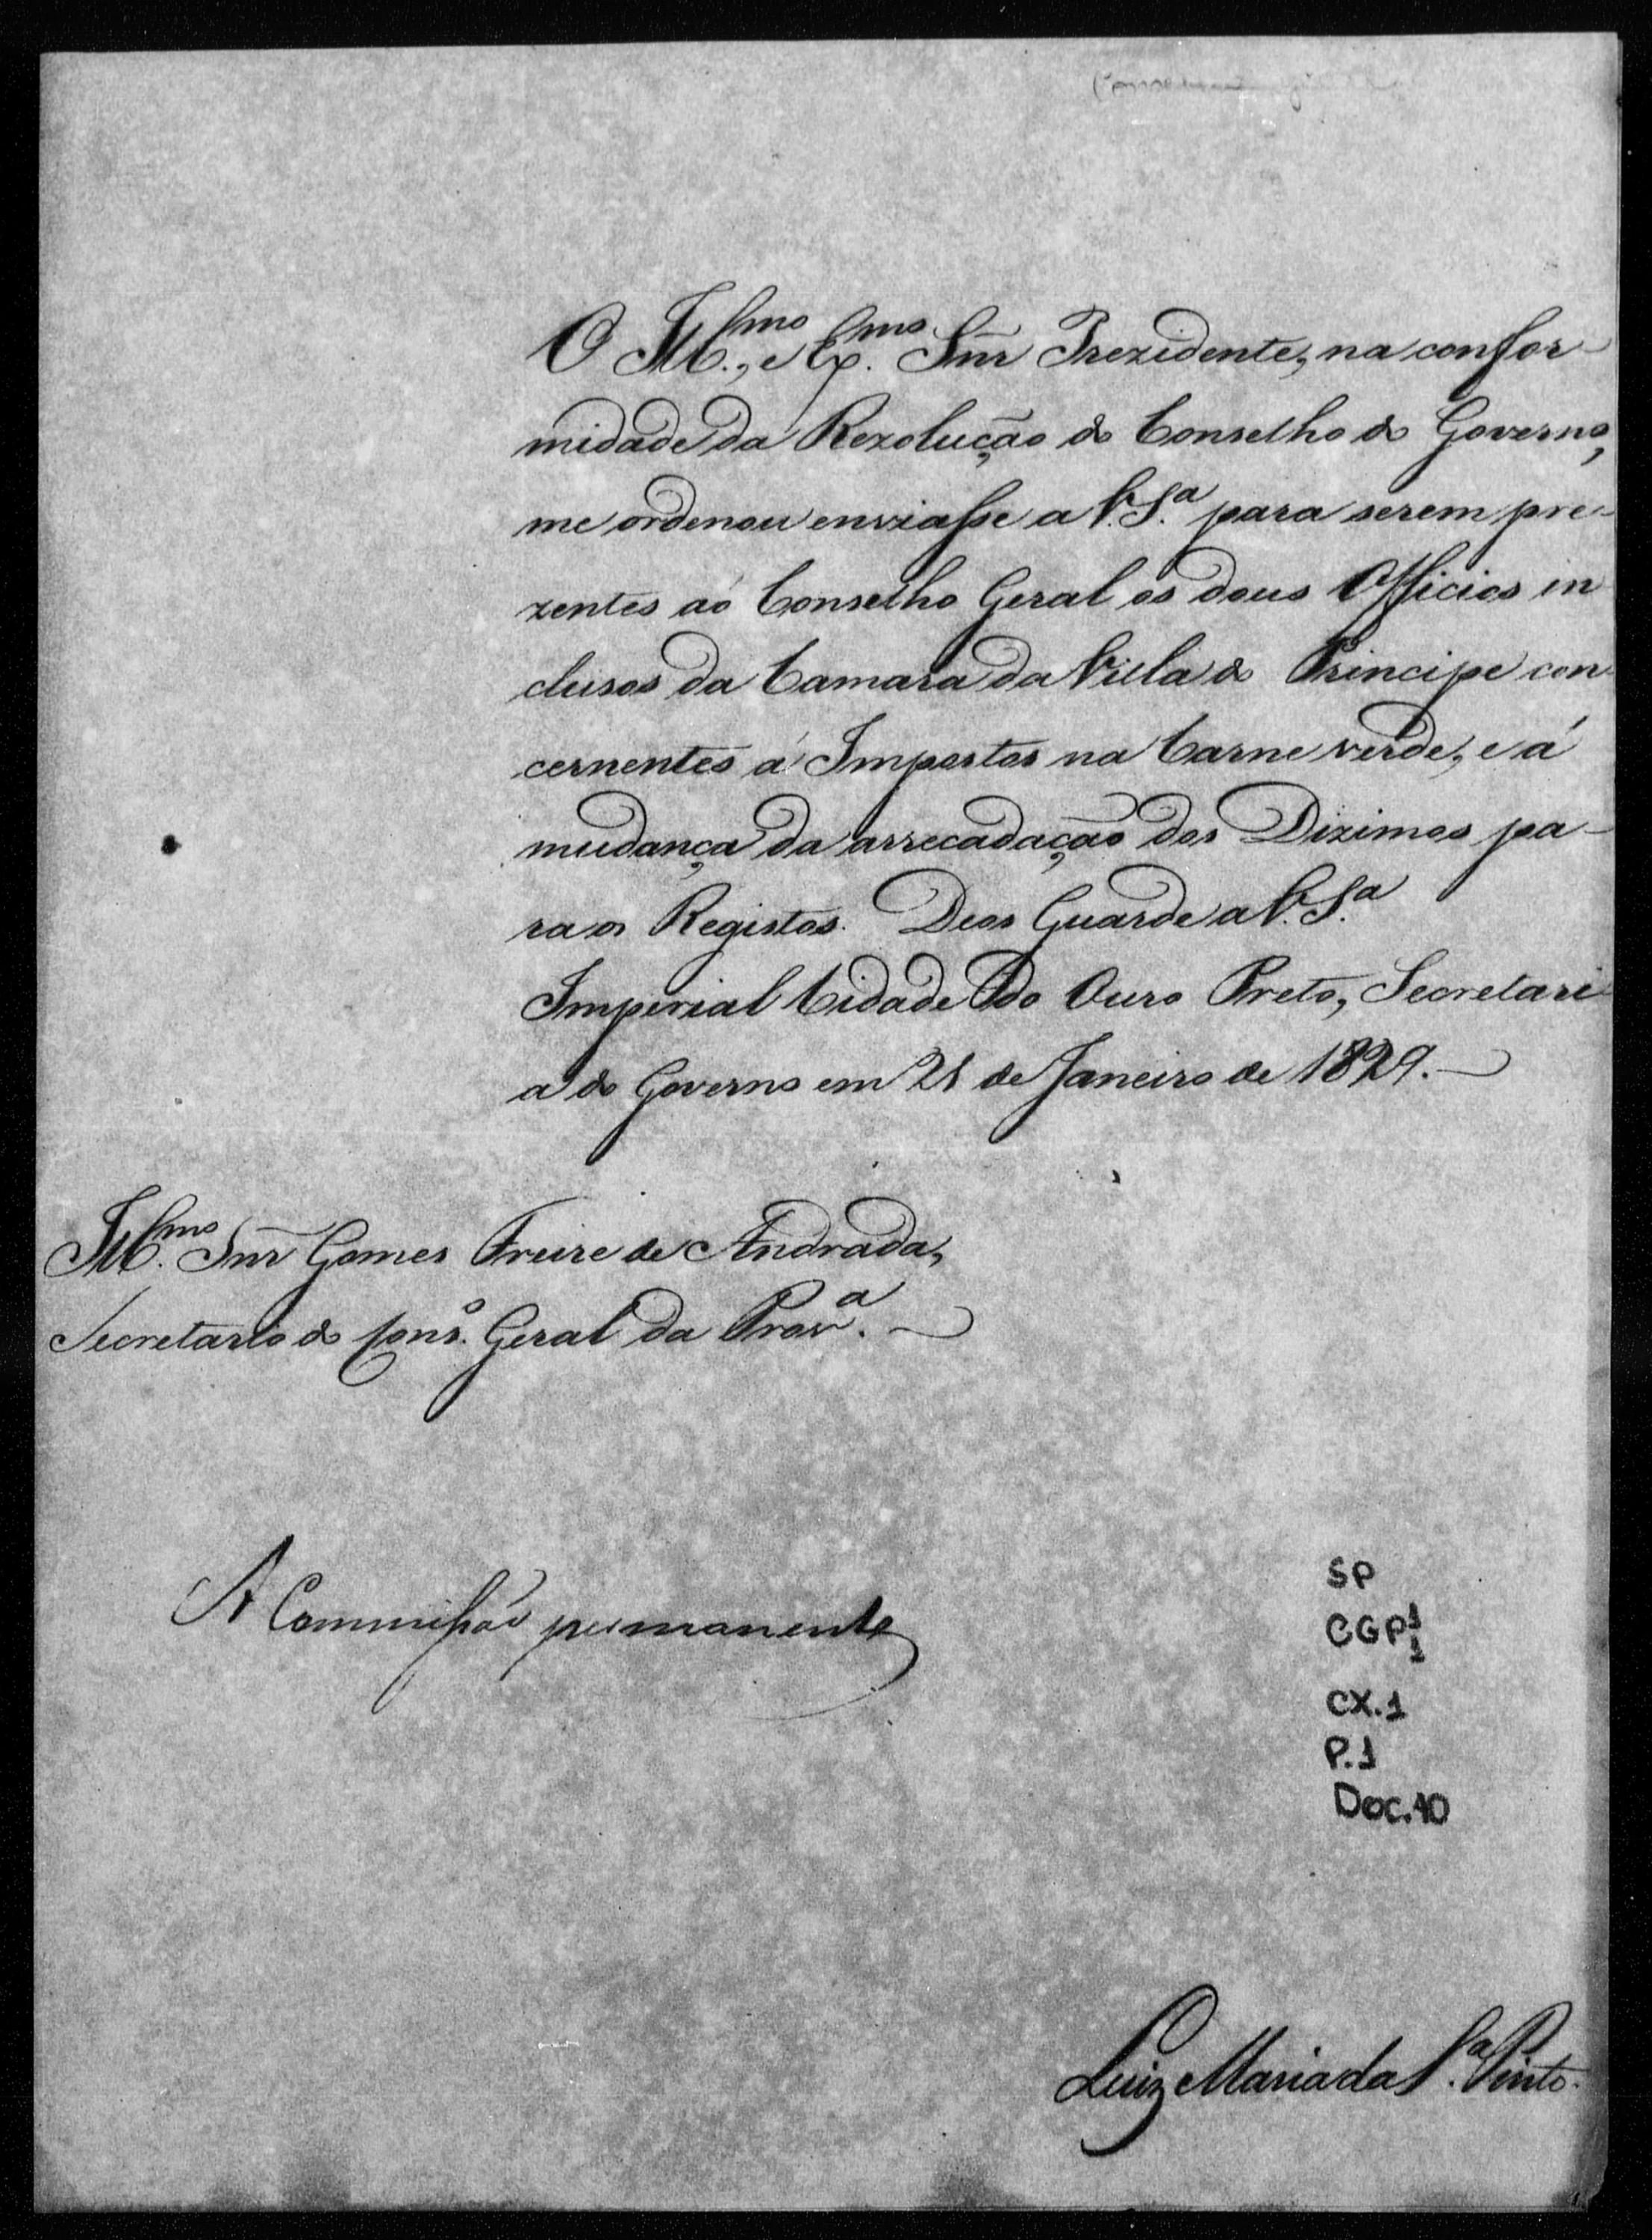 O Ill.mo, e Ex.mo Snr Prezidente, na confor-
midade da Rezolução do Conselho do Governo,
me ordenou enviasse a V.S.a para serem pre-
zentes aó Conselho Geral os dous Officios in
clusos da Camara da Villa do Principe con
cernentes á Impostos na Carne verde, e á
mudança da arrecadação dos Dizimos pa-
ra os Registos. Deos Guarde a V.S.a
Imperial Cidade do Ouro Preto, Secretari
a do Governo em 21 de Janeiro de 1829.
Ill.mo Snr Gomes Freire de Andrada,
Secretario do Cons.o Geral da Prov.a
A Commissão permanente
SP
CGP 1
1
CX.1
P.1
Doc.10
Luiz Maria da S.a Pinto.